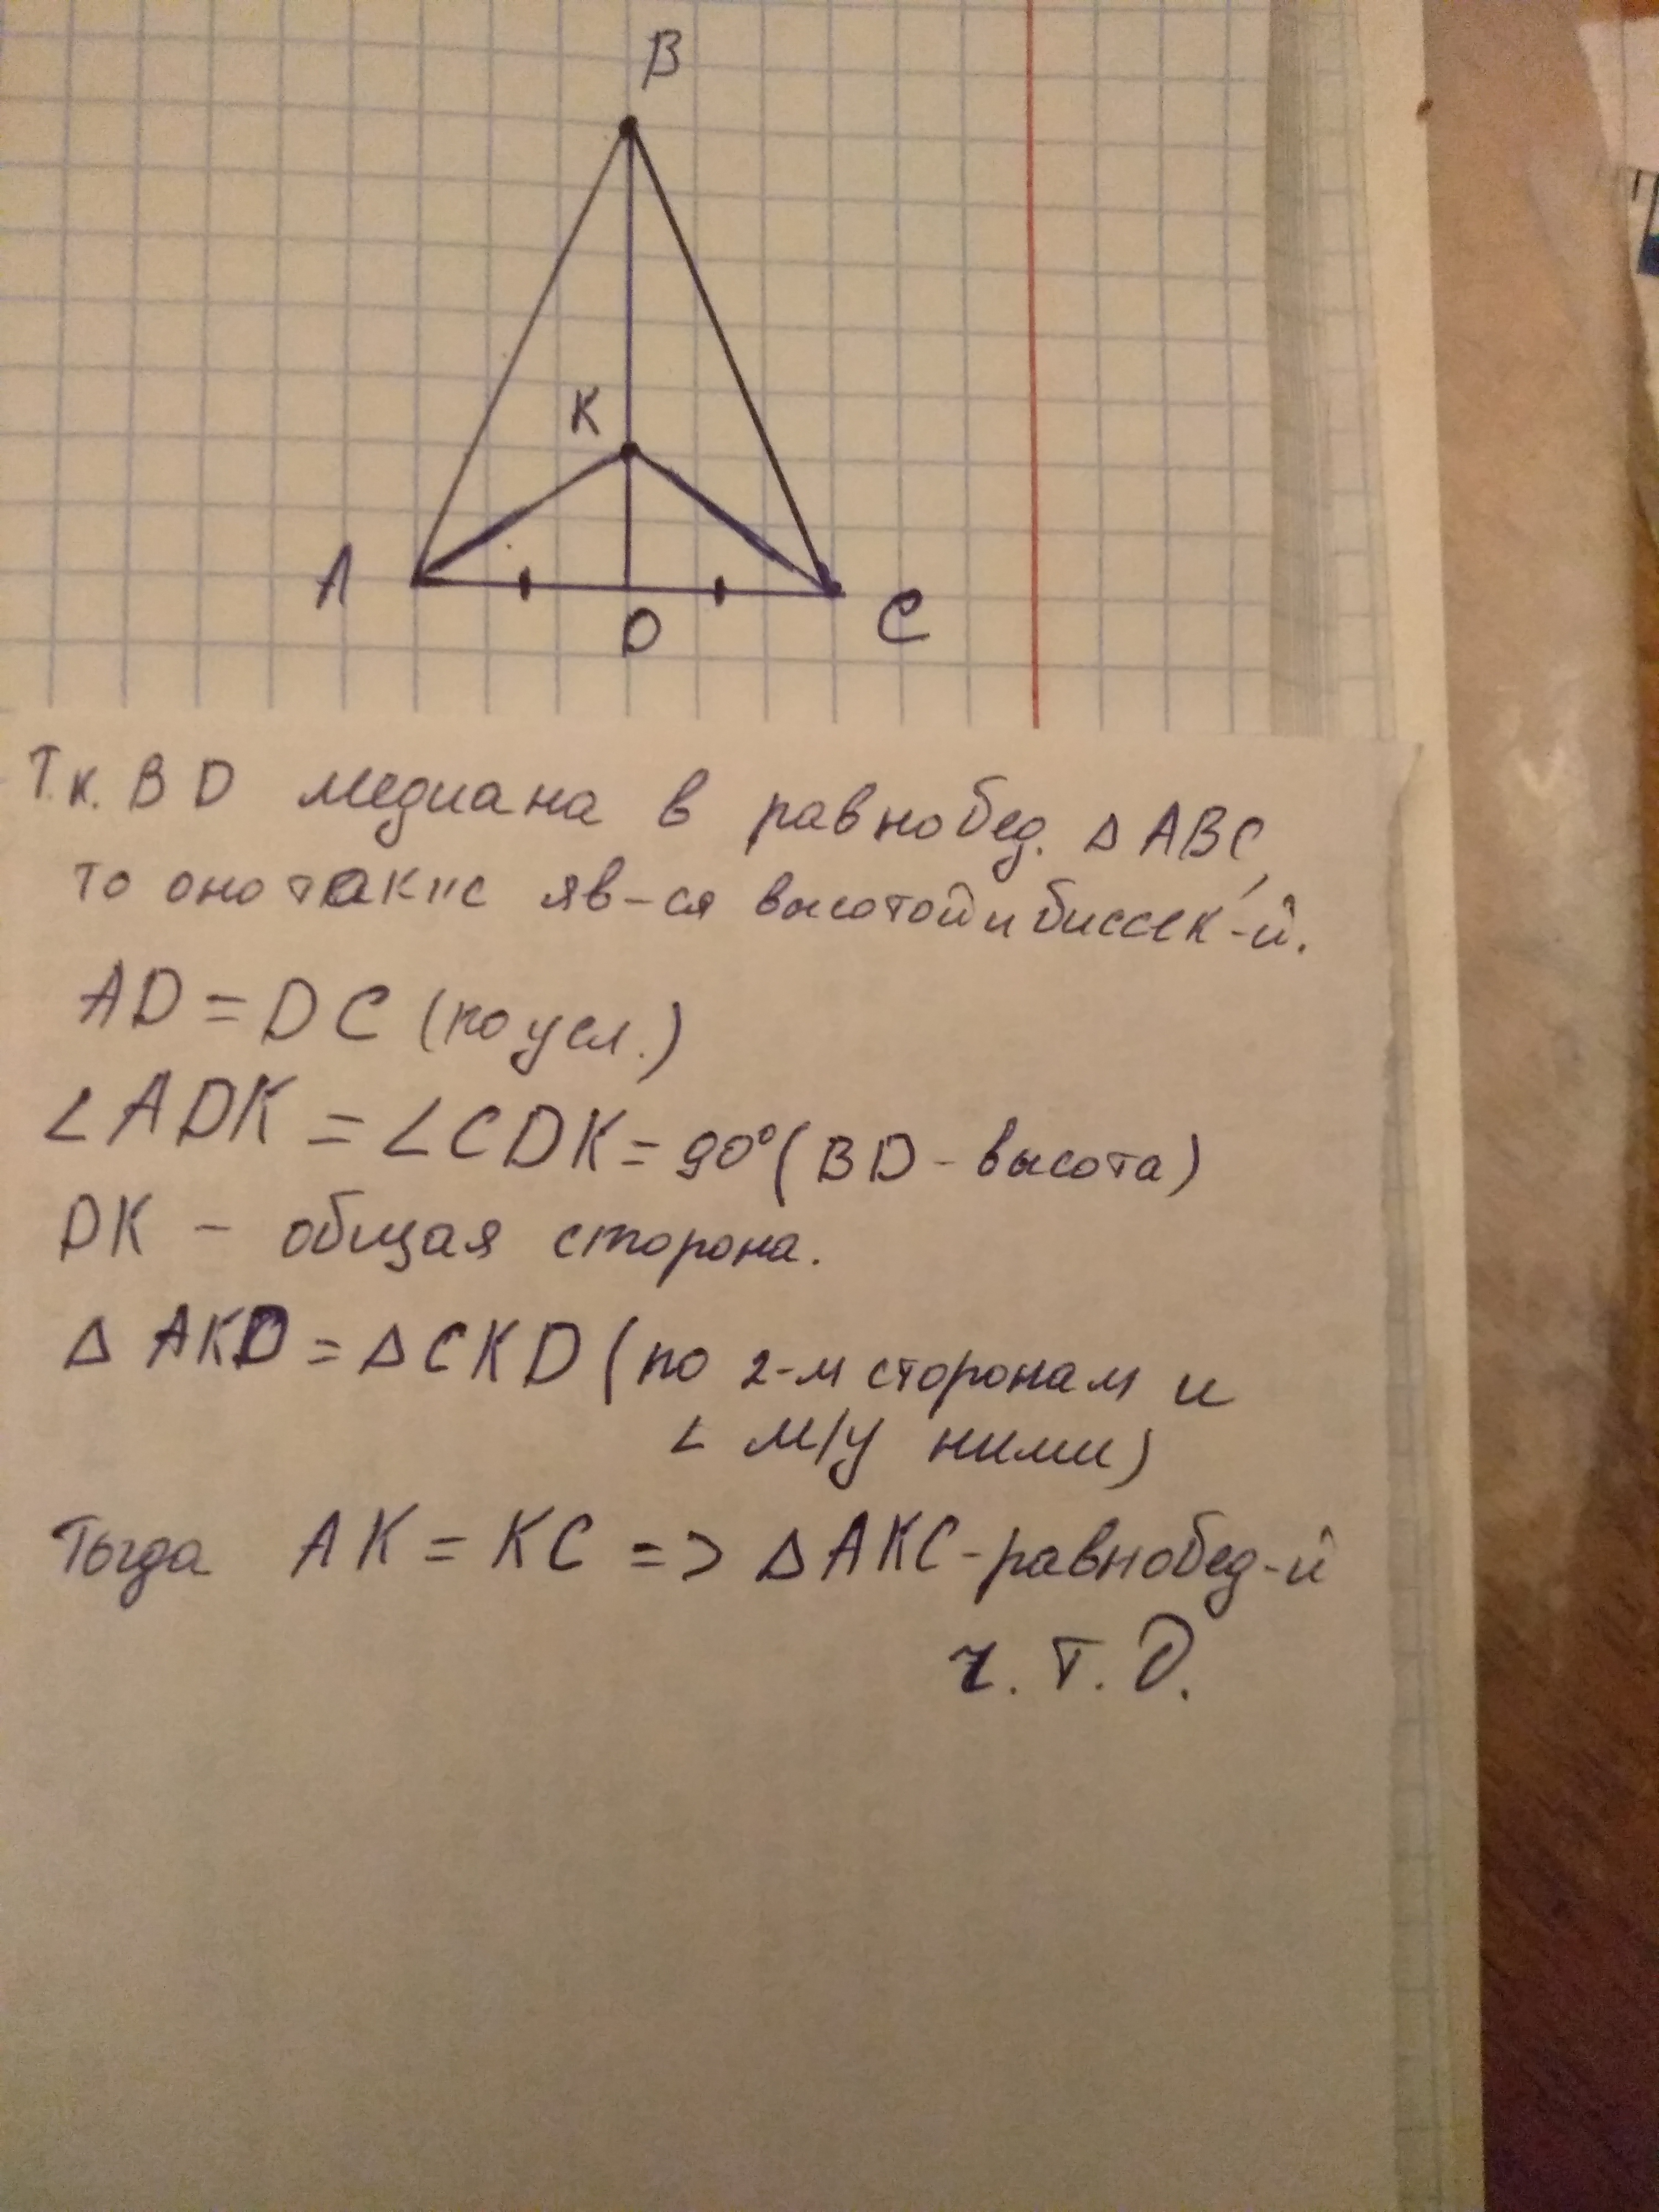 B
K
A
D
C
Т.к. BD медиана в равнобед. Δ ABC,
то оно также яв-ся высотой и биссек-й.
AD = DC (по усл.)
∠ADK = ∠CDK = 90° (BD - высота)
DK - общая сторона.
Δ AKD = Δ CKD (по 2-м сторонам и
∠ м/у ними)
Тогда AK = KC => Δ AKC - равнобед-й
ч.т.д.